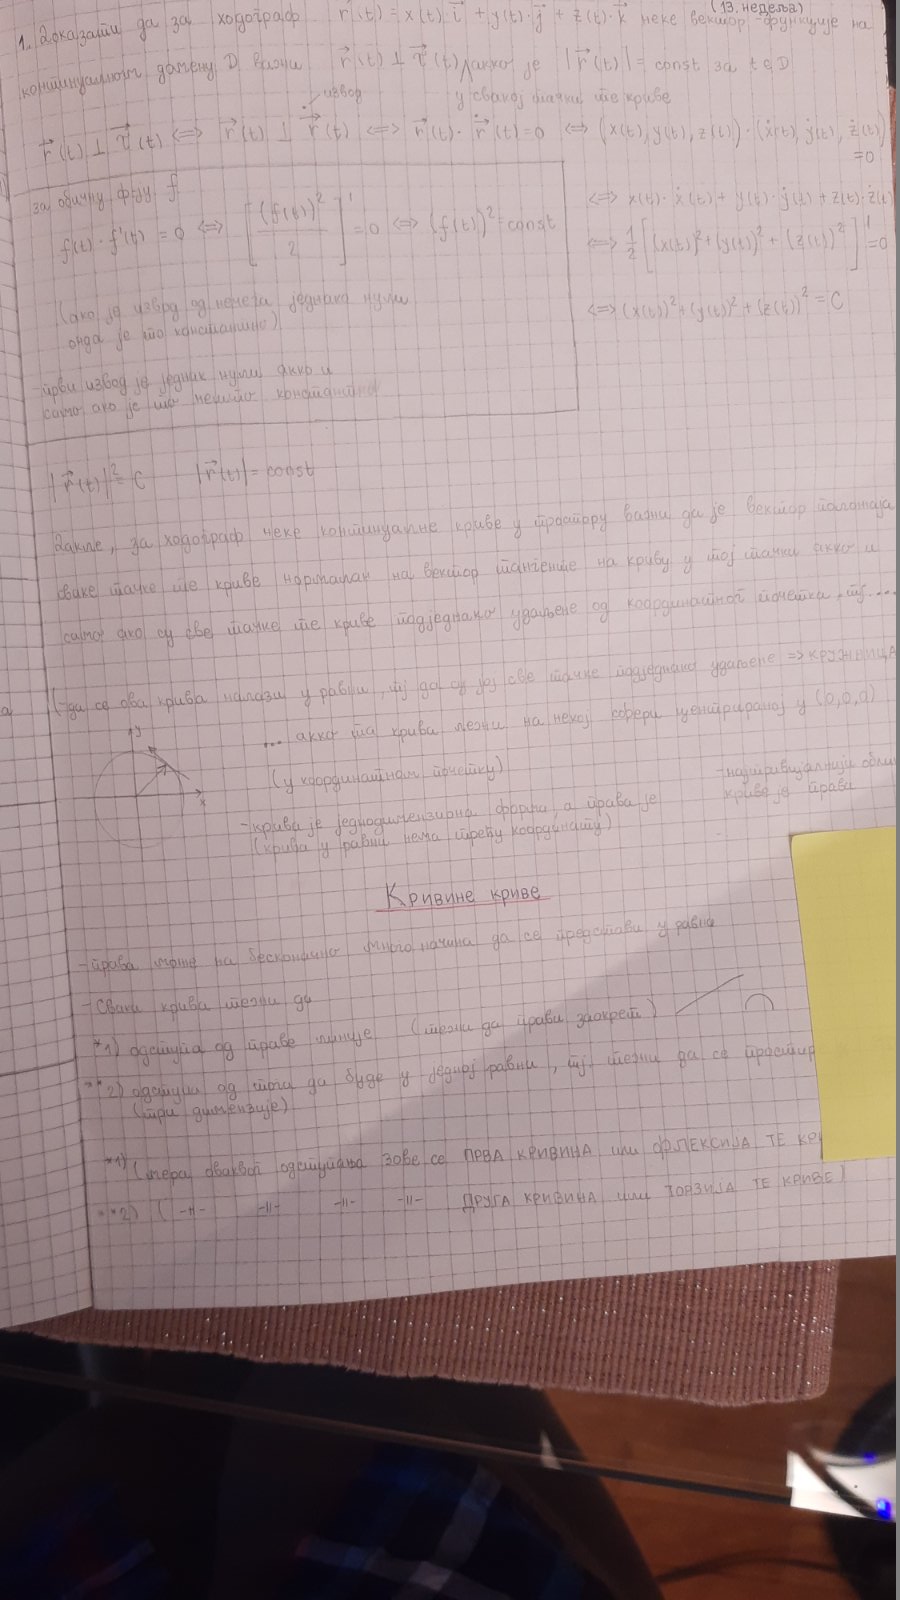 (13. недеља)
1. Доказати да за ходограф r⃗(t) = x(t)·i⃗ + y(t)·j⃗ + z(t)·k⃗ неке вектор-функције на
континуалном домену D важи r⃗(t) ⊥ τ⃗(t) акко је |r⃗(t)| = const за t∈D
извод
у свакој тачки те криве
r⃗(t) ⊥ τ⃗(t) ⟺ r⃗(t) ⊥ ṙ⃗(t) ⟺ r⃗(t)·ṙ⃗(t) = 0 ⟺ (x(t), y(t), z(t))·(ẋ(t), ẏ(t), ż(t))
=0
за обичну фју f
f(t)·f'(t) = 0 ⟺ [(f(t))²/2]' = 0 ⟺ (f(t))² = const
(ако је извод од нечега једнако нули
онда је то константно)
први извод је једнак нули акко и
само ако је то нешто константно
⟺ x(t)·ẋ(t) + y(t)·ẏ(t) + z(t)·ż(t)
⟺ 1/2 [(x(t))² + (y(t))² + (z(t))²]' = 0
⟺ (x(t))² + (y(t))² + (z(t))² = C
|r⃗(t)|² = C |r⃗(t)| = const
Дакле, за ходограф неке континуалне криве у простору важи да је вектор положаја
сваке тачке те криве нормалан на вектор тангенте на криву у тој тачки акко и
само ако су све тачке те криве подједнако удаљене од координатног почетка, тј. ...
(-да се ова крива налази у равни, тј да су јој све тачке подједнако удаљене => КРУЖНИЦА
... акко та крива лежи на некој сфери центрираној у (0,0,0)
(у координатном почетку)
y
x
-крива је једнодимензирна форма, а права је
(крива у равни нема трећу координату)
-најтривијалнији обли
криве је права
Кривине криве
-права може на бесконачно много начина да се представи у равни
-Свака крива тежи да
*1) одступа од праве линије (тежи да прави заокрет)
**2) одступи од тога да буде у једној равни, тј. тежи да се простир
(три димензије)
*1) (мера оваквог одступања зове се ПРВА КРИВИНА или ФЛЕКСИЈА ТЕ КРИ
**2) ( -॥- -॥- -॥- -॥- ДРУГА КРИВИНА или ТОРЗИЈА ТЕ КРИВЕ)